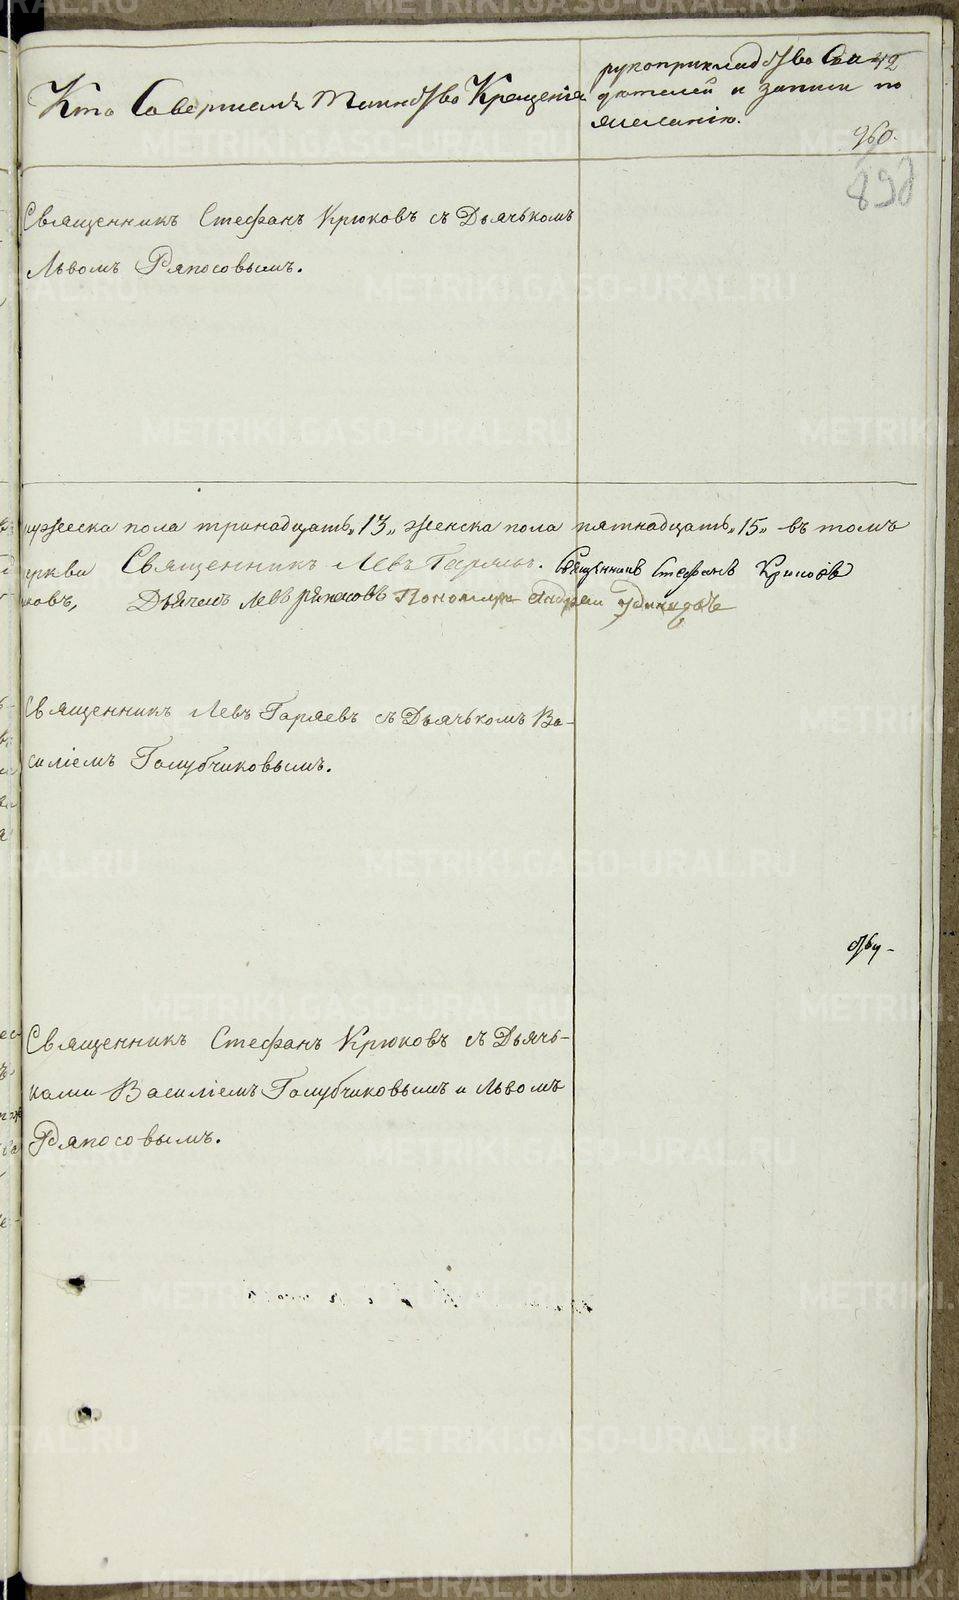 Кто Совершалъ Таинство Крещенія
рукоприкладство Сви-
дѣтелей и записи по
желанію.
42
960.
890
Священникъ Стефанъ Крюковъ съ Дьячькомъ
Львомъ Ряпосовымъ.
мужеска пола тринадцать „13„ женска пола пятнадцать „15„ въ томъ
церкви Священникъ Левъ Гаряевъ. Священникъ Стефанъ Крюковъ
ковъ, Дьячекъ Левъ Ряпосовъ Пономарь Андрей
Священникъ Левъ Гаряевъ съ Дьячькомъ Ва-
силіемъ Голубчиковымъ.
Священникъ Стефанъ Крюковъ съ Дьячь-
ками Василіемъ Голубчиковымъ и Львомъ
Ряпосовымъ.
METRIKI.GASO-URAL.RU